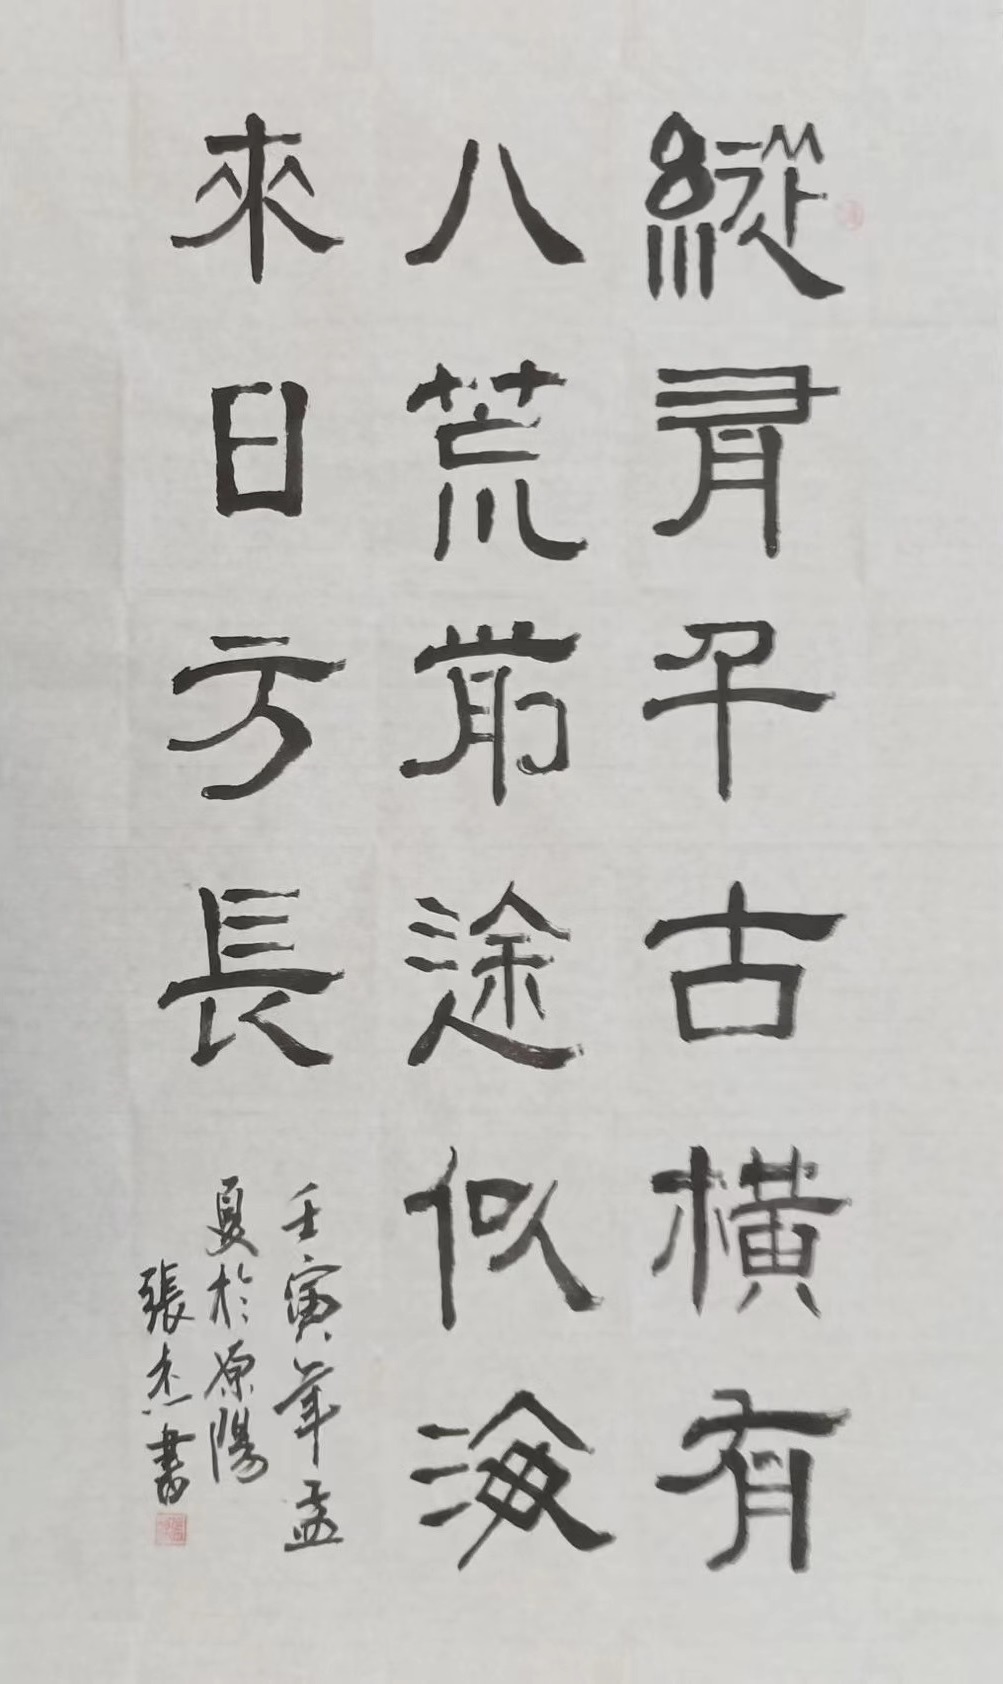 縱有千古橫有
八荒前途似海
來日方長
壬寅年孟
夏於原陽
張杰書